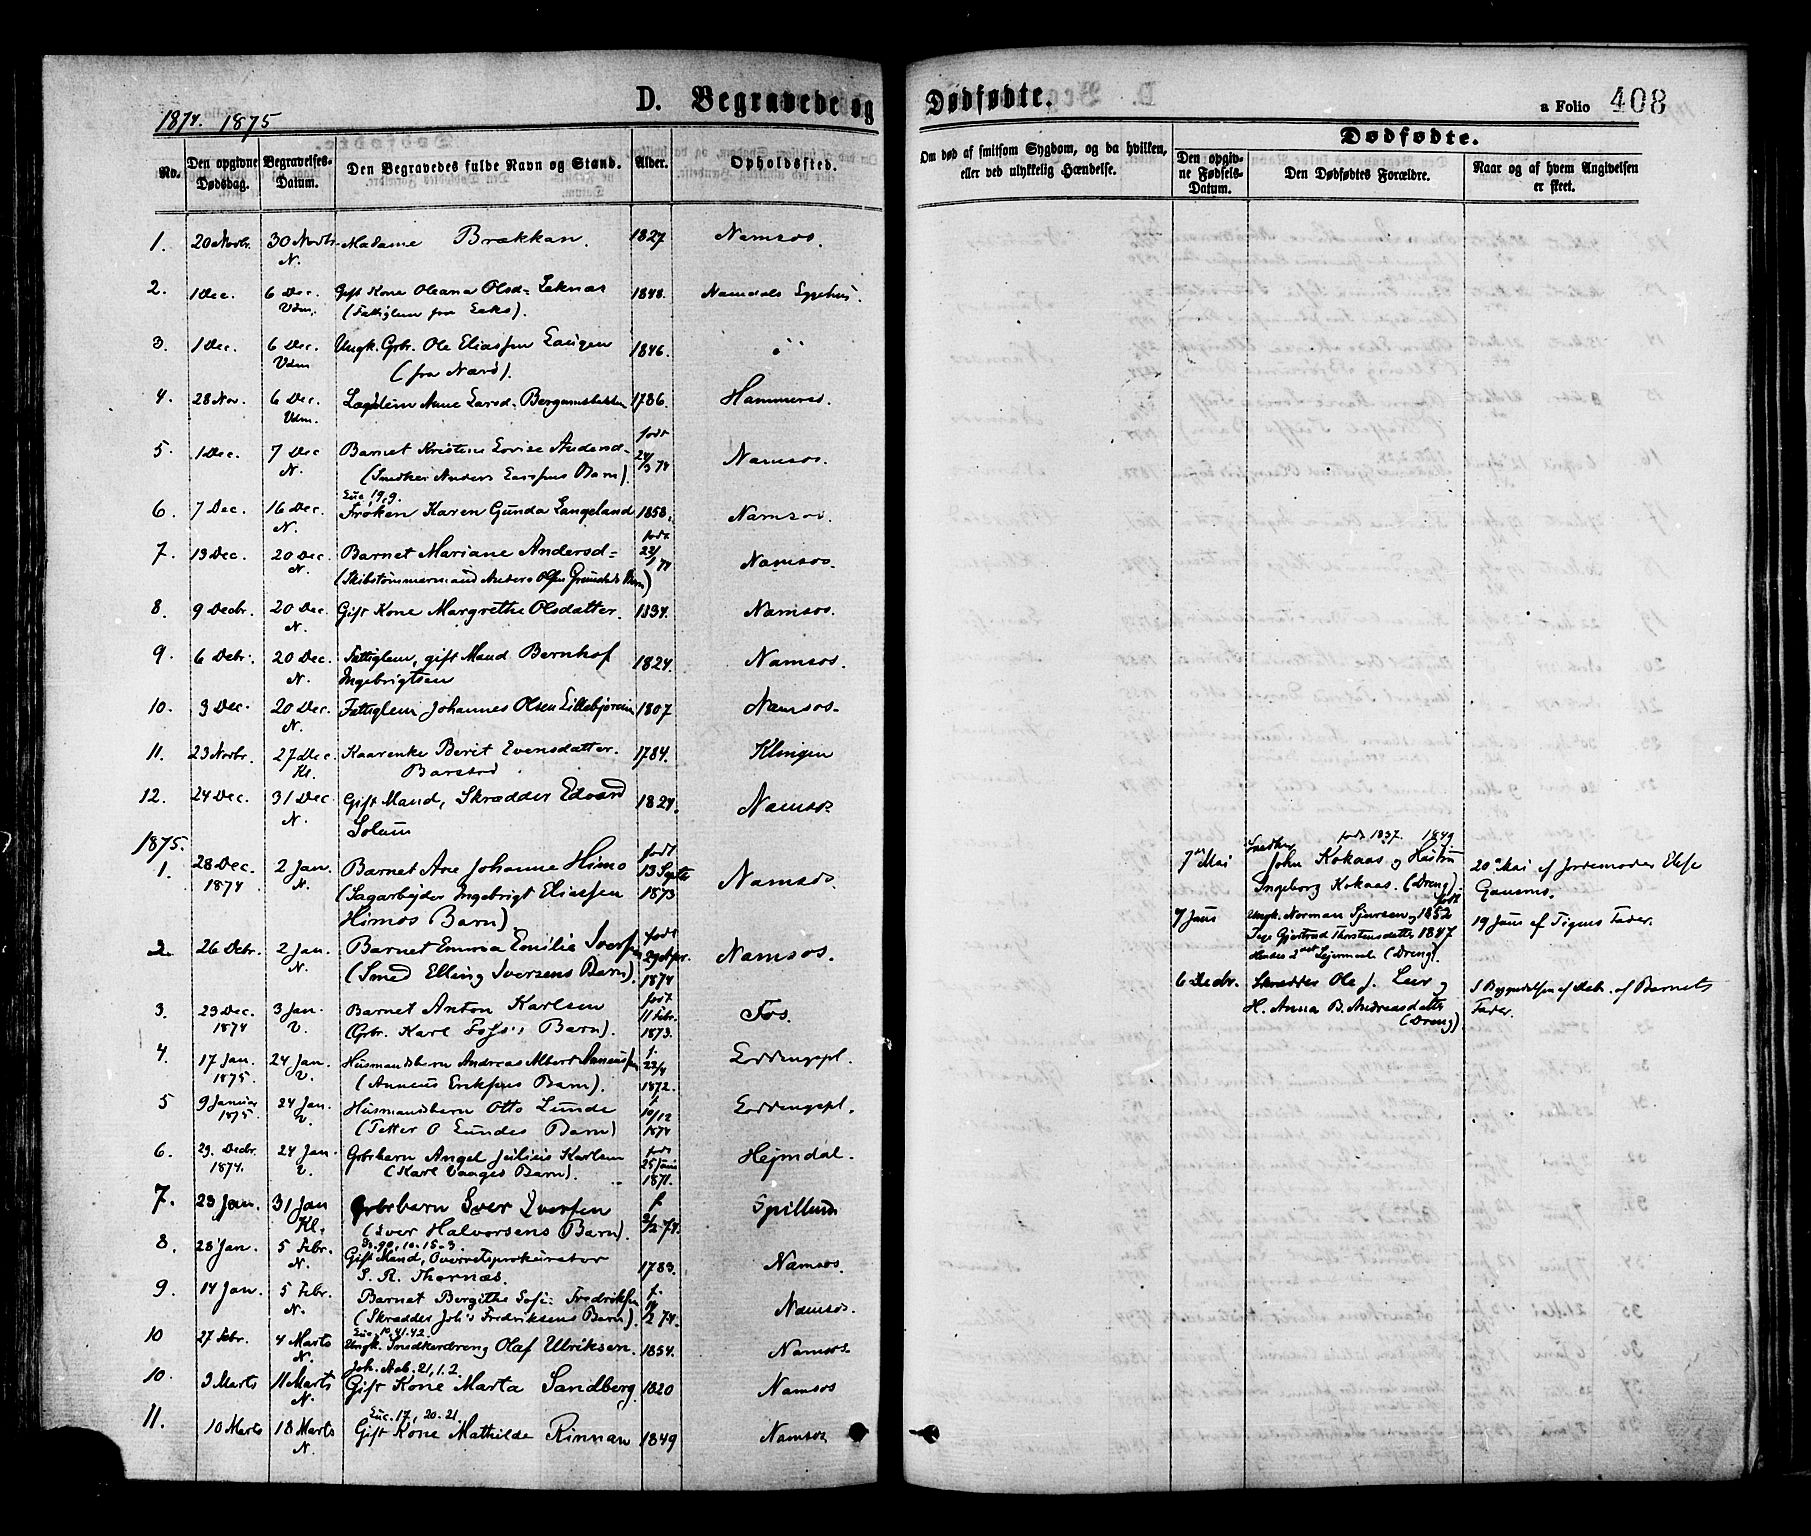 1874. 1875
D. Begravede og Dødfødte.
a Folio 408
No.
Den opgivne Dødsdag.
Begravelses-Datum.
Den Begravedes fulde Navn og Stand.
Alder.
Opholdssted.
Om død af smitsom Sygdom, og da hvilken, eller ved ulykkelig Hændelse.
Dødfødte.
Den opgivne Fødsels-Datum.
Den Dødfødtes Forældre.
Naar og af hvem Angivelsen er skeet.
1. 20 Novbr. 30 Novbr. Madame Brækkan. 1827 Namsos.
N.
2. 1 Dec. 6 Dec. Gift Kone Oleana Olsd= Leknæs 1848. Namdals Sygehus.
Vdm. (Fattiglem fra Leka).
3. 1 Dec. 6 Dec. Ungk. Gbr. Ole Eliassen Laugen 1846. "
Vdm (fra Nærø).
4. 28 Nov. 6 Dec. Lægdslem Anne Larsd= 1786. Hammeres.
Vdm.
5. 1 Dec. 7 Dec Barnet Kristine Lovise Andersd= født 24/3 74 Namsos.
N. (Snedker Anders Larssens Barn).
Luc. 19, 9.
6. 7 Dec. 16 Dec. Frøken Karen Gunda Langeland 1858. Namsos.
N.
7. 13 Dec. 20 Dec. Barnet Mariane Andersd= født 22/1 74 Namsos.
N. (Skibstømmermand Anders Olsen Barn)
8. 9 Decbr. 20 Dec. Gift Kone Margrethe Olsdatter. 1834. Namsos.
N.
9. 6 Debr. 20 Dec. Fattiglem, gift Mand Bernhof 1824. Namsos.
N. Ingebrigtsen
10. 3 Dec. 20 Dec. Fattiglem Johannes Olsen 1807 Namsos.
N.
11. 23 Novbr. 27 Dec. Kaarenke Berit Evensdatter. 1784. Klingen
Kl. Barstad
12. 24 Dec. 31 Dec. Gift Mand, Skrædder Edvard 1824. Namsos
N. Solum
1875.
1. 28 Dec. 2 Jan. Barnet Ane Johanne Himo født 13 Septb 1873 Namsos.
1874 N. (Sagarbejder Ingebrigt Eliassen
Himos Barn)
2. 26 Debr. 2 Jan. Barnet Emma Emilie Iversen født 29 Apr. 1874 Namsos.
N. (Smed Elling Iversens Barn).
3. 23 Dec. 3 Jan. Barnet Anton Karlsen født 11 Febr. 1873. Fos.
1874 V. (Gbr. Karl Foss's Barn).
4. 17 Jan. 24 Jan. Husmandsbarn Andreas Albert f. 22/4 1872. Loddengspl.
1875. V. (Anneus Eriksens Barn).
5 9 Januar 24 Jan. Husmandsbarn Otto Lunde f. 10/12 1874 Loddengspl.
1875. V. (Petter O Lundes Barn)
6. 29. Decbr. 24 Jan. Gbrbarn Angel Julius Karlsen født 25 Juni 1871. Hejmdal.
1874. V. (Karl Vaages Barn).
7. 23 Jan. 31 Jan Gbrbarn Iver Iversen f. 2/2 74. Spillum
Kl. (Iver Halvorsens Barn).
Ps. 90, 10. 15-3.
8. 28 Jan. 5 Febr. Gift Mand, Overretsprokurator 1783. Namsos.
N. S. R. Thornæs.
9. 14 Jan. 5 Febr. Barnet Bergithe Sofie Fredriksen f. 14/2 74. Namsos.
N. (Skrædder Joh's Fredriksens Barn).
Luc. 10. 41. 42.
10 27 Febr. 4 Marts Ungk. Snedkerdreng Olaf Ulriksen. 1854. Namsos.
N.
Joh. Aab. 21, 1. 2.
10. 3 Marts 11 Marts Gift Kone Marta Sandberg 1820 Namsos
N.
Luc. 17, 20-21.
11. 10 Marts 18 Marts Gift Kone Mathilde Rinnan 1849 Namsos
N.
7de Mai Snedker født 1837. 1849
John Kokaas og Hustru 20 Mai af Jordemoder Else
Ingeborg Kokaas. (Dreng). Gansmo.
7 Juni Ungk. Norman Sjursen og født 1852 19 Juni af Pigens Fader.
Pige Gjertrud Thorstensdatter 1847
Hendes 2det Lejermaal (Dreng).
6 Decbr. Skrædder Ole J. Leer og af Debr. af Barnets
H. Anna B. Andreasdatter Fader.
(Dreng)